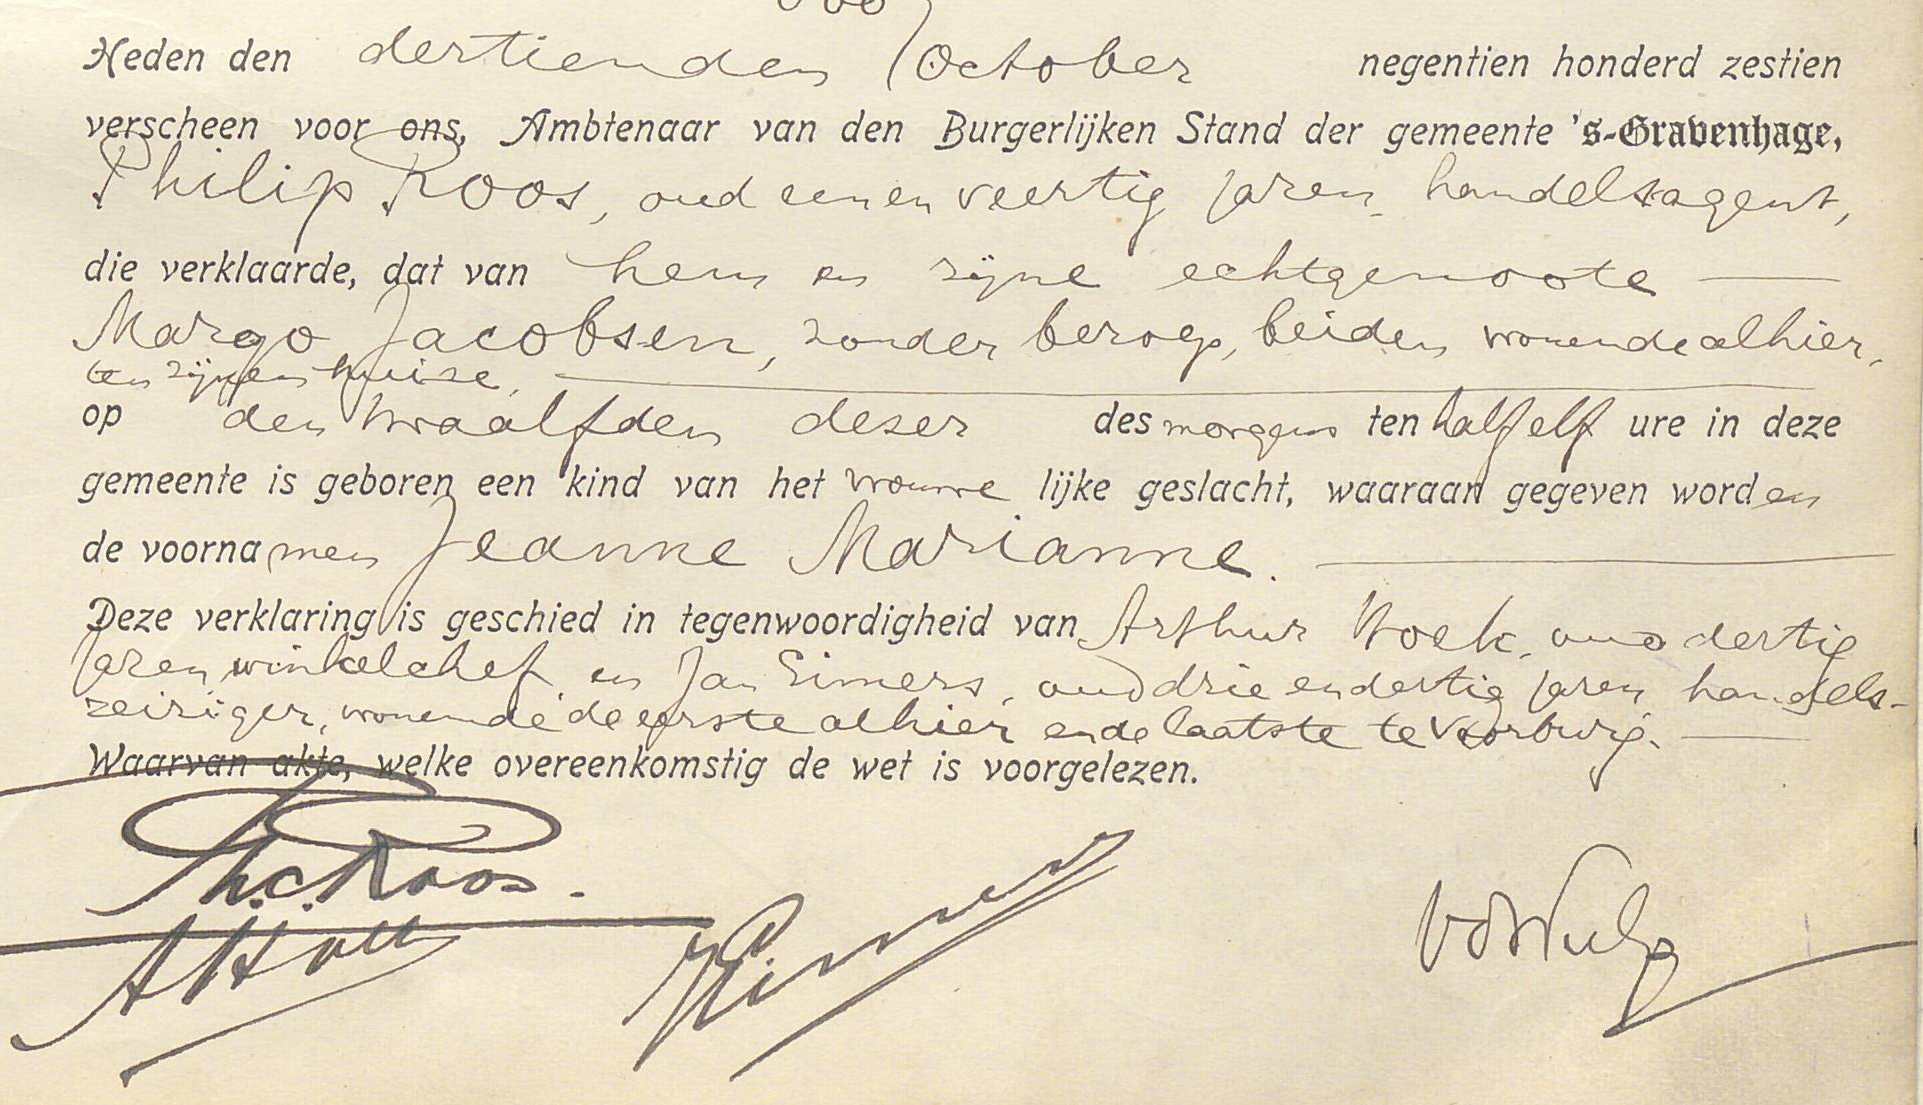 Heden den dertienden October negentien honderd zestien
verscheen voor ons, Ambtenaar van den Burgerlijken Stand der gemeente 's-Gravenhage,
Philip Roos, oud een en veertig jaren, handelsagent,
die verklaarde, dat van hem en zijne echtgenoote
Margo Jacobsen, zonder beroep, beiden wonende alhier,
ten zijnen huize,
op den twaalfden dezer des morgens ten half elf ure in deze
gemeente is geboren een kind van het vrouwelijke geslacht, waaraan gegeven worden
de voornamen Jeanne Marianne.
Deze verklaring is geschied in tegenwoordigheid van Arthur oud dertig
jaren winkelchef, en Jan Eimers, oud drie en dertig jaren handels-
reiziger, wonende de eerste alhier en de laatste te Voorburg.
Waarvan akte, welke overeenkomstig de wet is voorgelezen.
Ph. C. Roos.
VdWulp